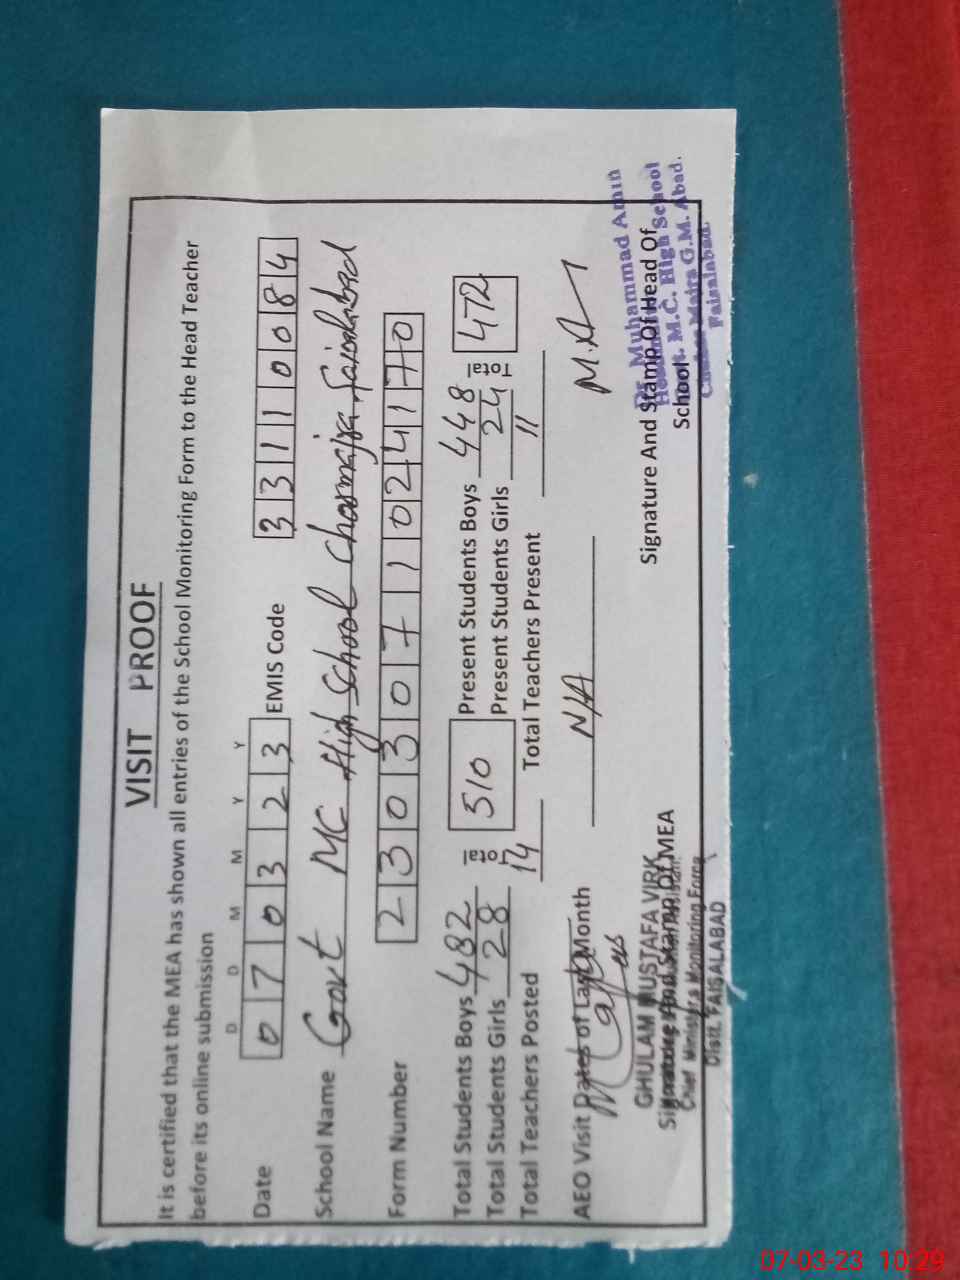 VISIT PROOF
It is certified that the MEA has shown all entries of the School Monitoring Form to the Head Teacher
before its online submission
D D M M Y Y
Date 0 7 0 3 2 3 EMIS Code 3 3 1 1 0 0 8 4
School Name Govt MC High School Charmajra Faisalabad
Form Number 2 3 0 3 0 7 1 0 2 4 1 7 0
Total Students Boys 482 Total 510 Present Students Boys 448 Total 472
Total Students Girls 28 Present Students Girls 24
Total Teachers Posted 14 Total Teachers Present 11
AEO Visit Dates of Last Month N/A
M.A
GHULAM MUSTAFA VIRK
Signature And Stamp Of MEA
Chief Minister's Monitoring Force
Distt. FAISALABAD
Signature And Stamp Of Head Of
School
Dr. Muhammad Amin
Govt. M.C. High School
G.M. Abad.
Faisalabad.
07-03-23 10:29